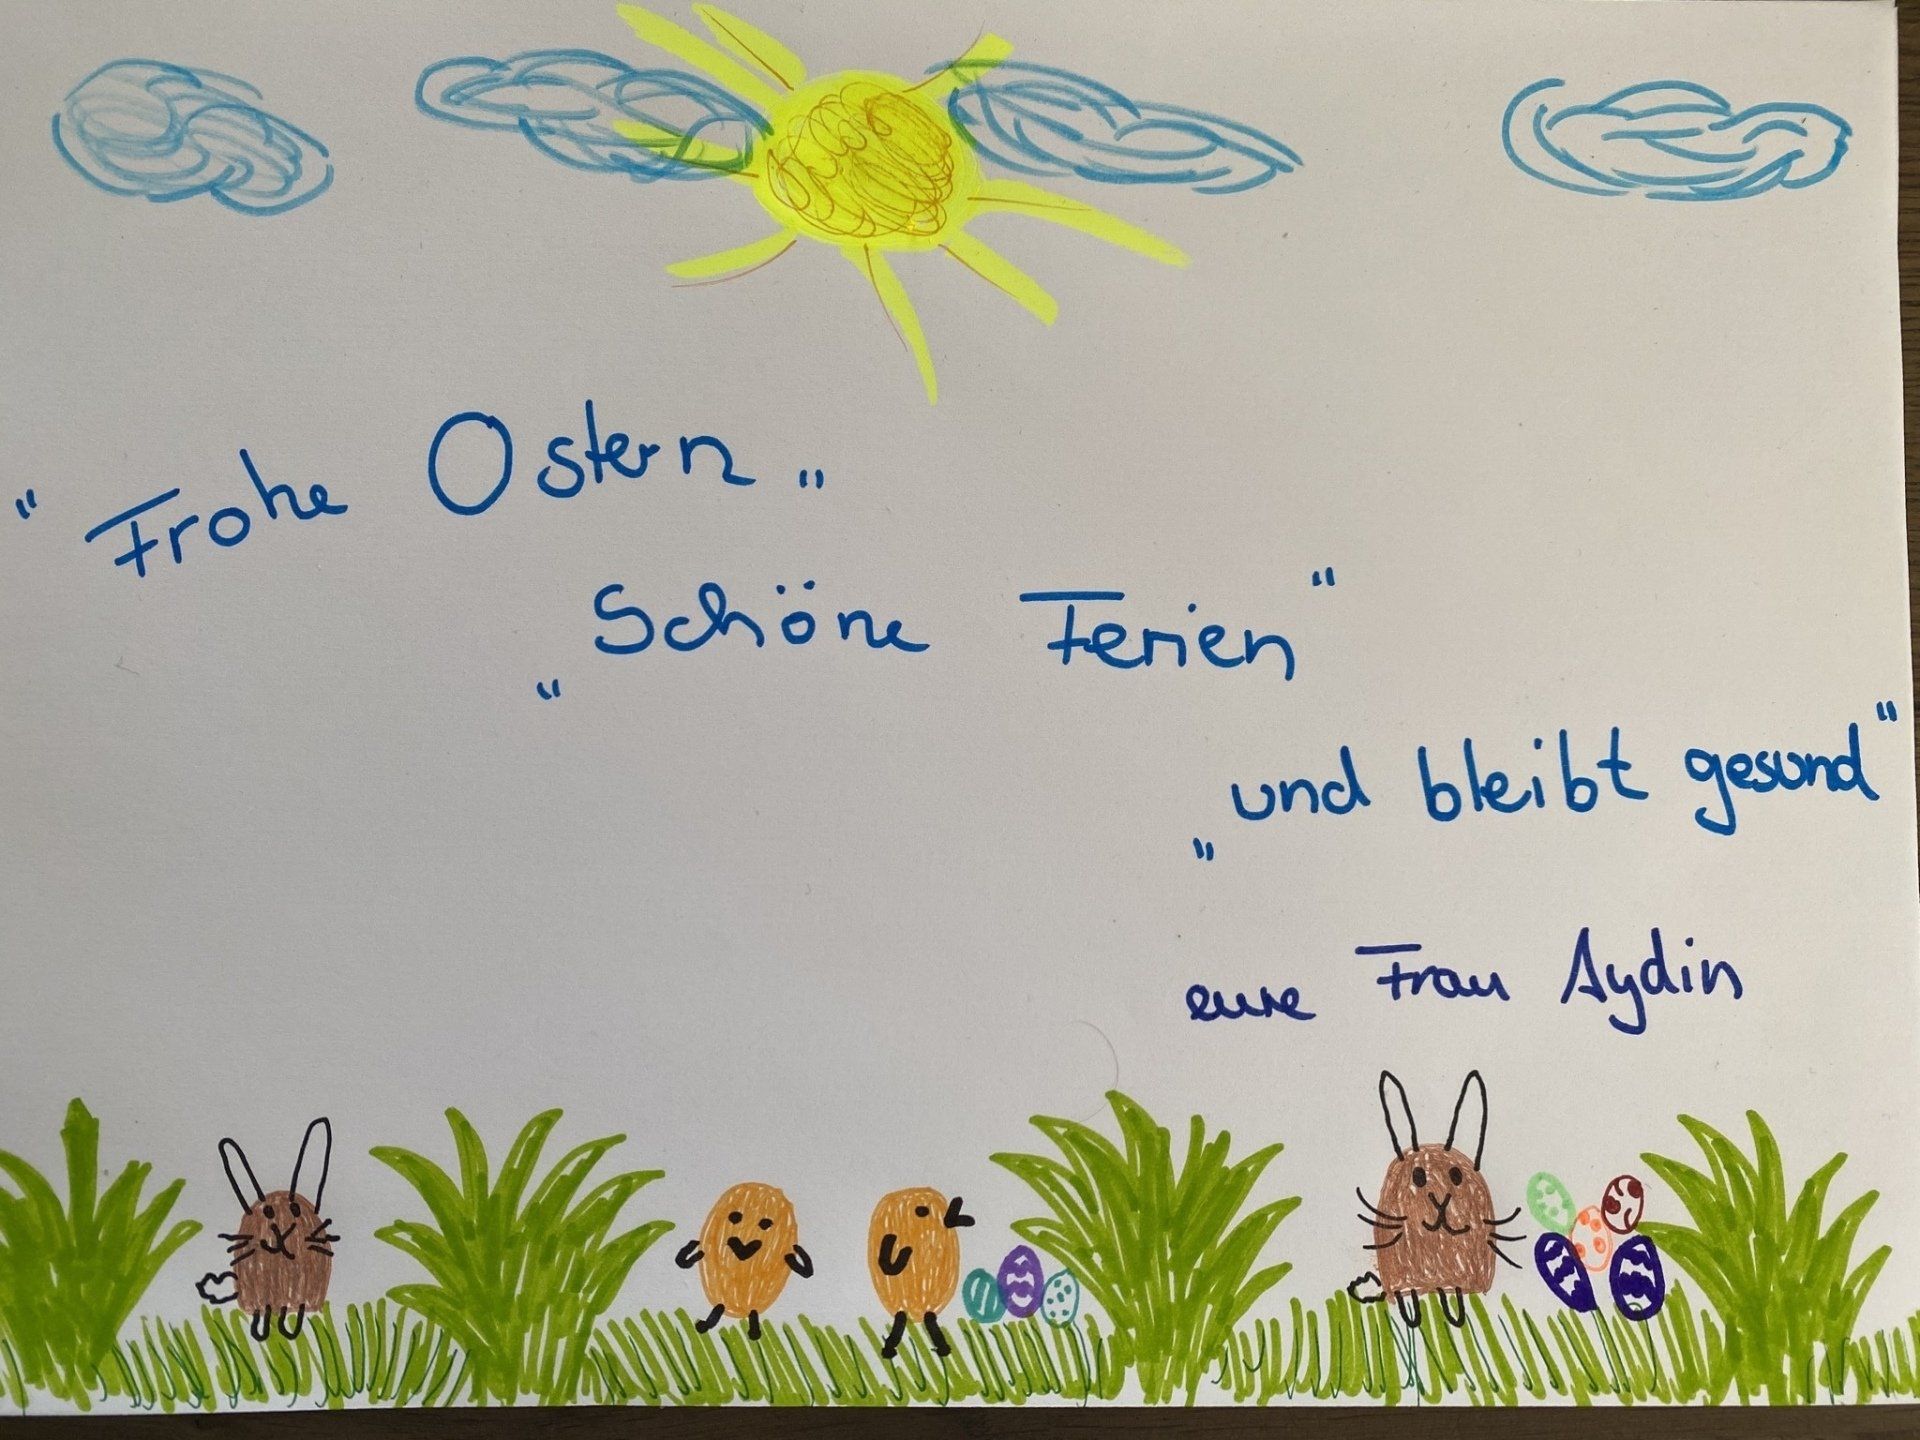 "Frohe Ostern"
"Schöne Ferien"
"und bleibt gesund"
eure Frau Aydin